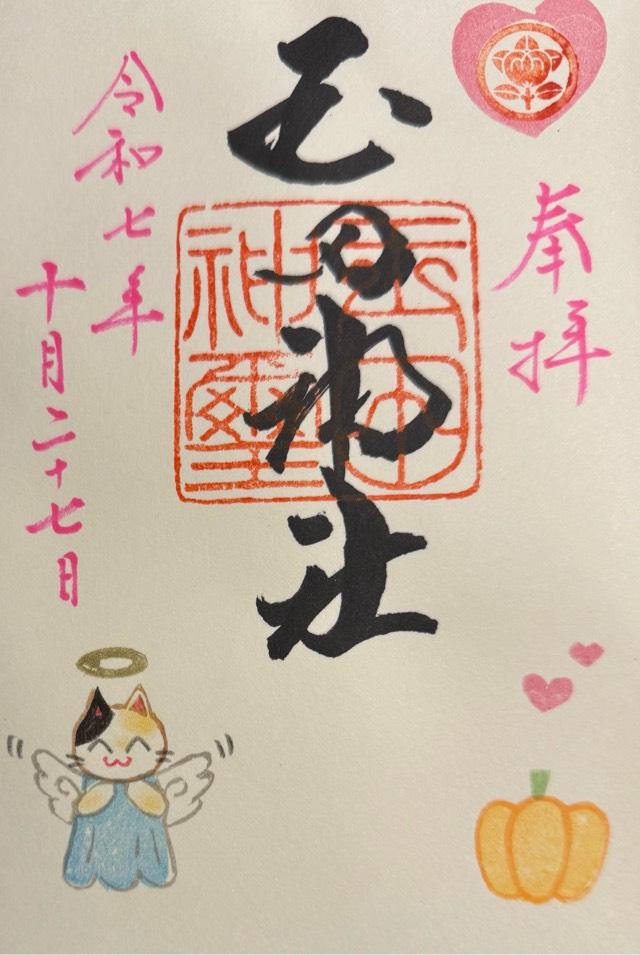 奉拝
玉田神社
玉田
神璽
令和七年
十月二十七日